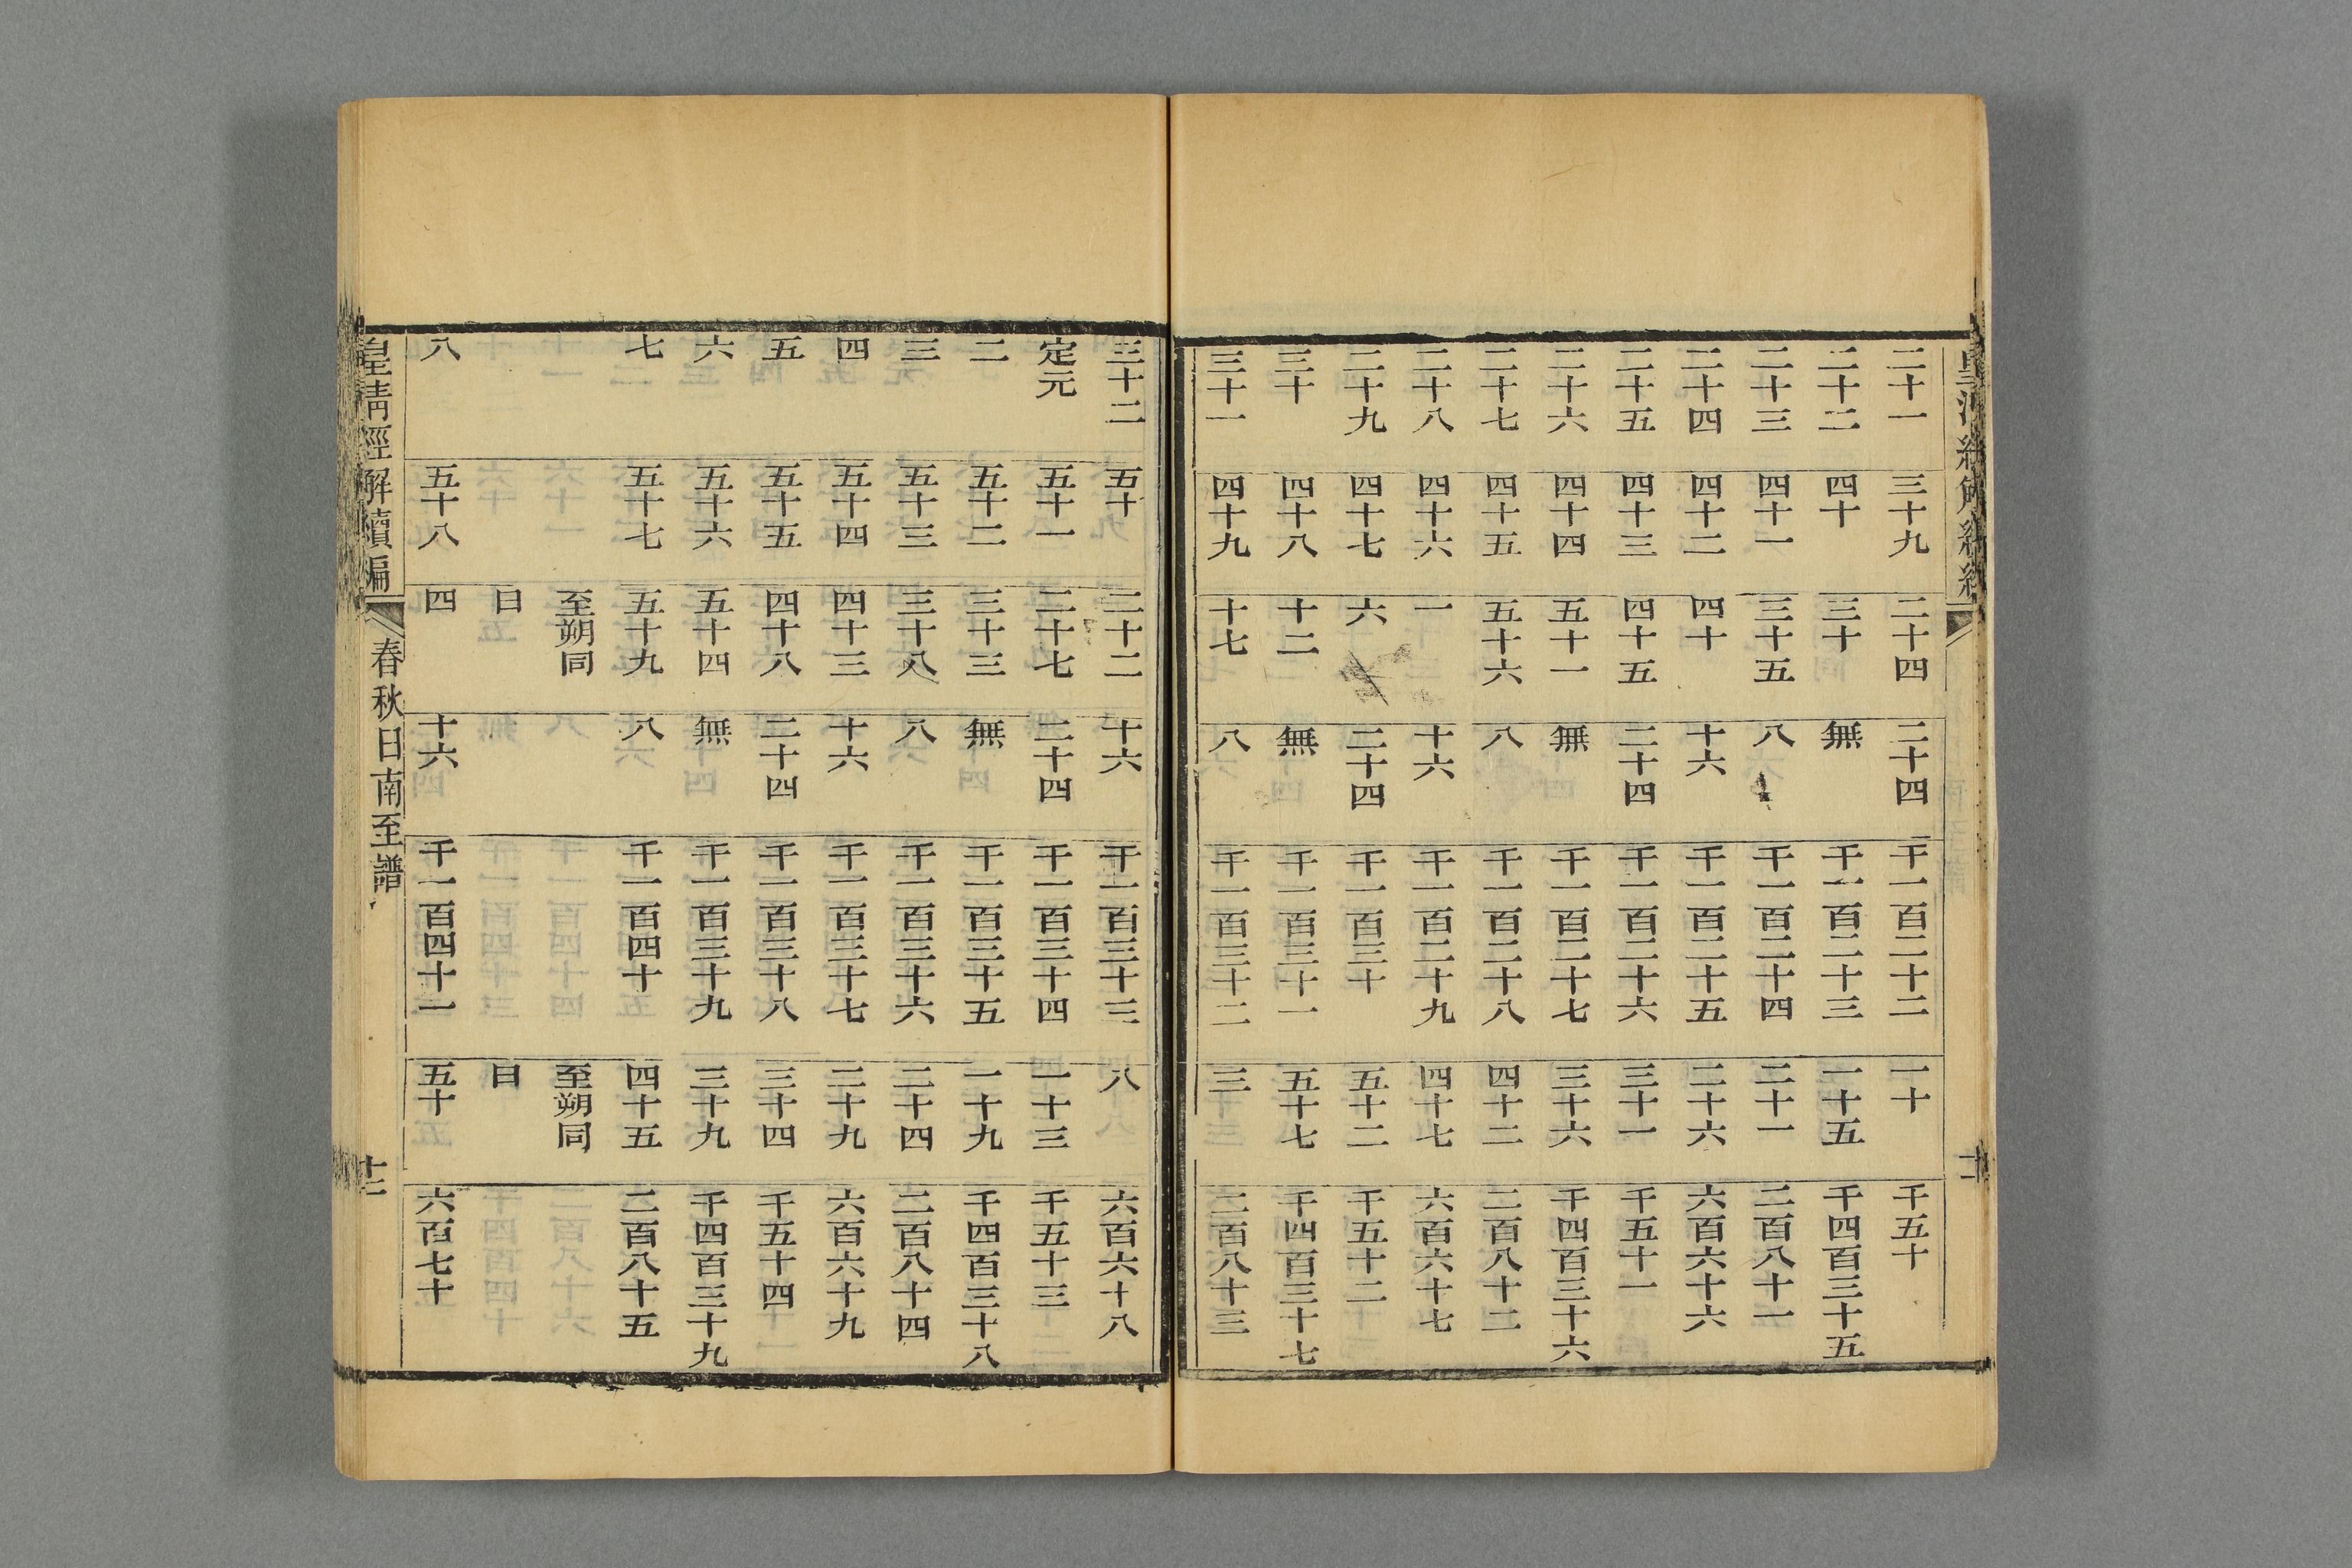 二十一 三十九 二十四 二十四 千一百二十二 一十 千五十
二十二 四十 三十 無 千一百二十三 一十五 千四百三十五
二十三 四十一 三十五 八 千一百二十四 二十一 二百八十一
二十四 四十二 四十 十六 千一百二十五 二十六 六百六十六
二十五 四十三 四十五 二十四 千一百二十六 三十一 千五十一
二十六 四十四 五十一 無 千一百二十七 三十六 千四百三十六
二十七 四十五 五十六 八 千一百二十八 四十二 二百八十二
二十八 四十六 一 十六 千一百二十九 四十七 六百六十七
二十九 四十七 六 二十四 千一百三十 五十二 千五十二
三十 四十八 十二 無 千一百三十一 五十七 千四百三十七
三十一 四十九 十七 八 千一百三十二 三 二百八十三
三十二 五十 二十二 十六 千一百三十三 八 六百六十八
定元 五十一 二十七 二十四 千一百三十四 一十三 千五十三
二 五十二 三十三 無 千一百三十五 一十九 千四百三十八
三 五十三 三十八 八 千一百三十六 二十四 二百八十四
四 五十四 四十三 十六 千一百三十七 二十九 六百六十九
五 五十五 四十八 二十四 千一百三十八 三十四 千五十四
六 五十六 五十四 無 千一百三十九 三十九 千四百三十九
七 五十七 五十九 八 千一百四十 四十五 二百八十五
至朔同 至朔同
日 日
八 五十八 四 十六 千一百四十一 五十 六百七十
皇清經解續編 春秋日南至譜 十二